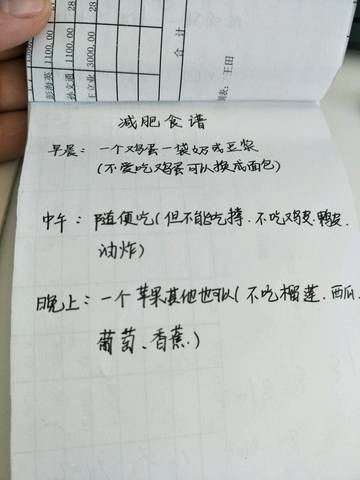 彭海英 1100.00 28
孙文通 1100.00 28
王立业 3000.00
合计
王田
减肥食谱
早晨：一个鸡蛋一袋奶或豆浆
(不爱吃鸡蛋可以换成面包)
中午：随便吃(但不能吃撑.不吃鸡皮.鸭皮.
油炸)
晚上：一个苹果其他也可以(不吃榴莲.西瓜.
葡萄、香蕉.)